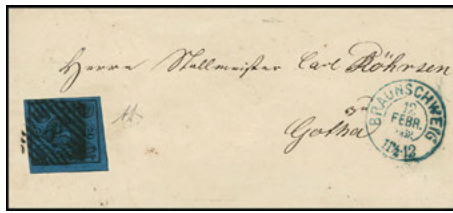 Herrn Stallmeister Carl Röhrsen
Gotha
BRAUNSCHWEIG
12
FEBR.
11½-12